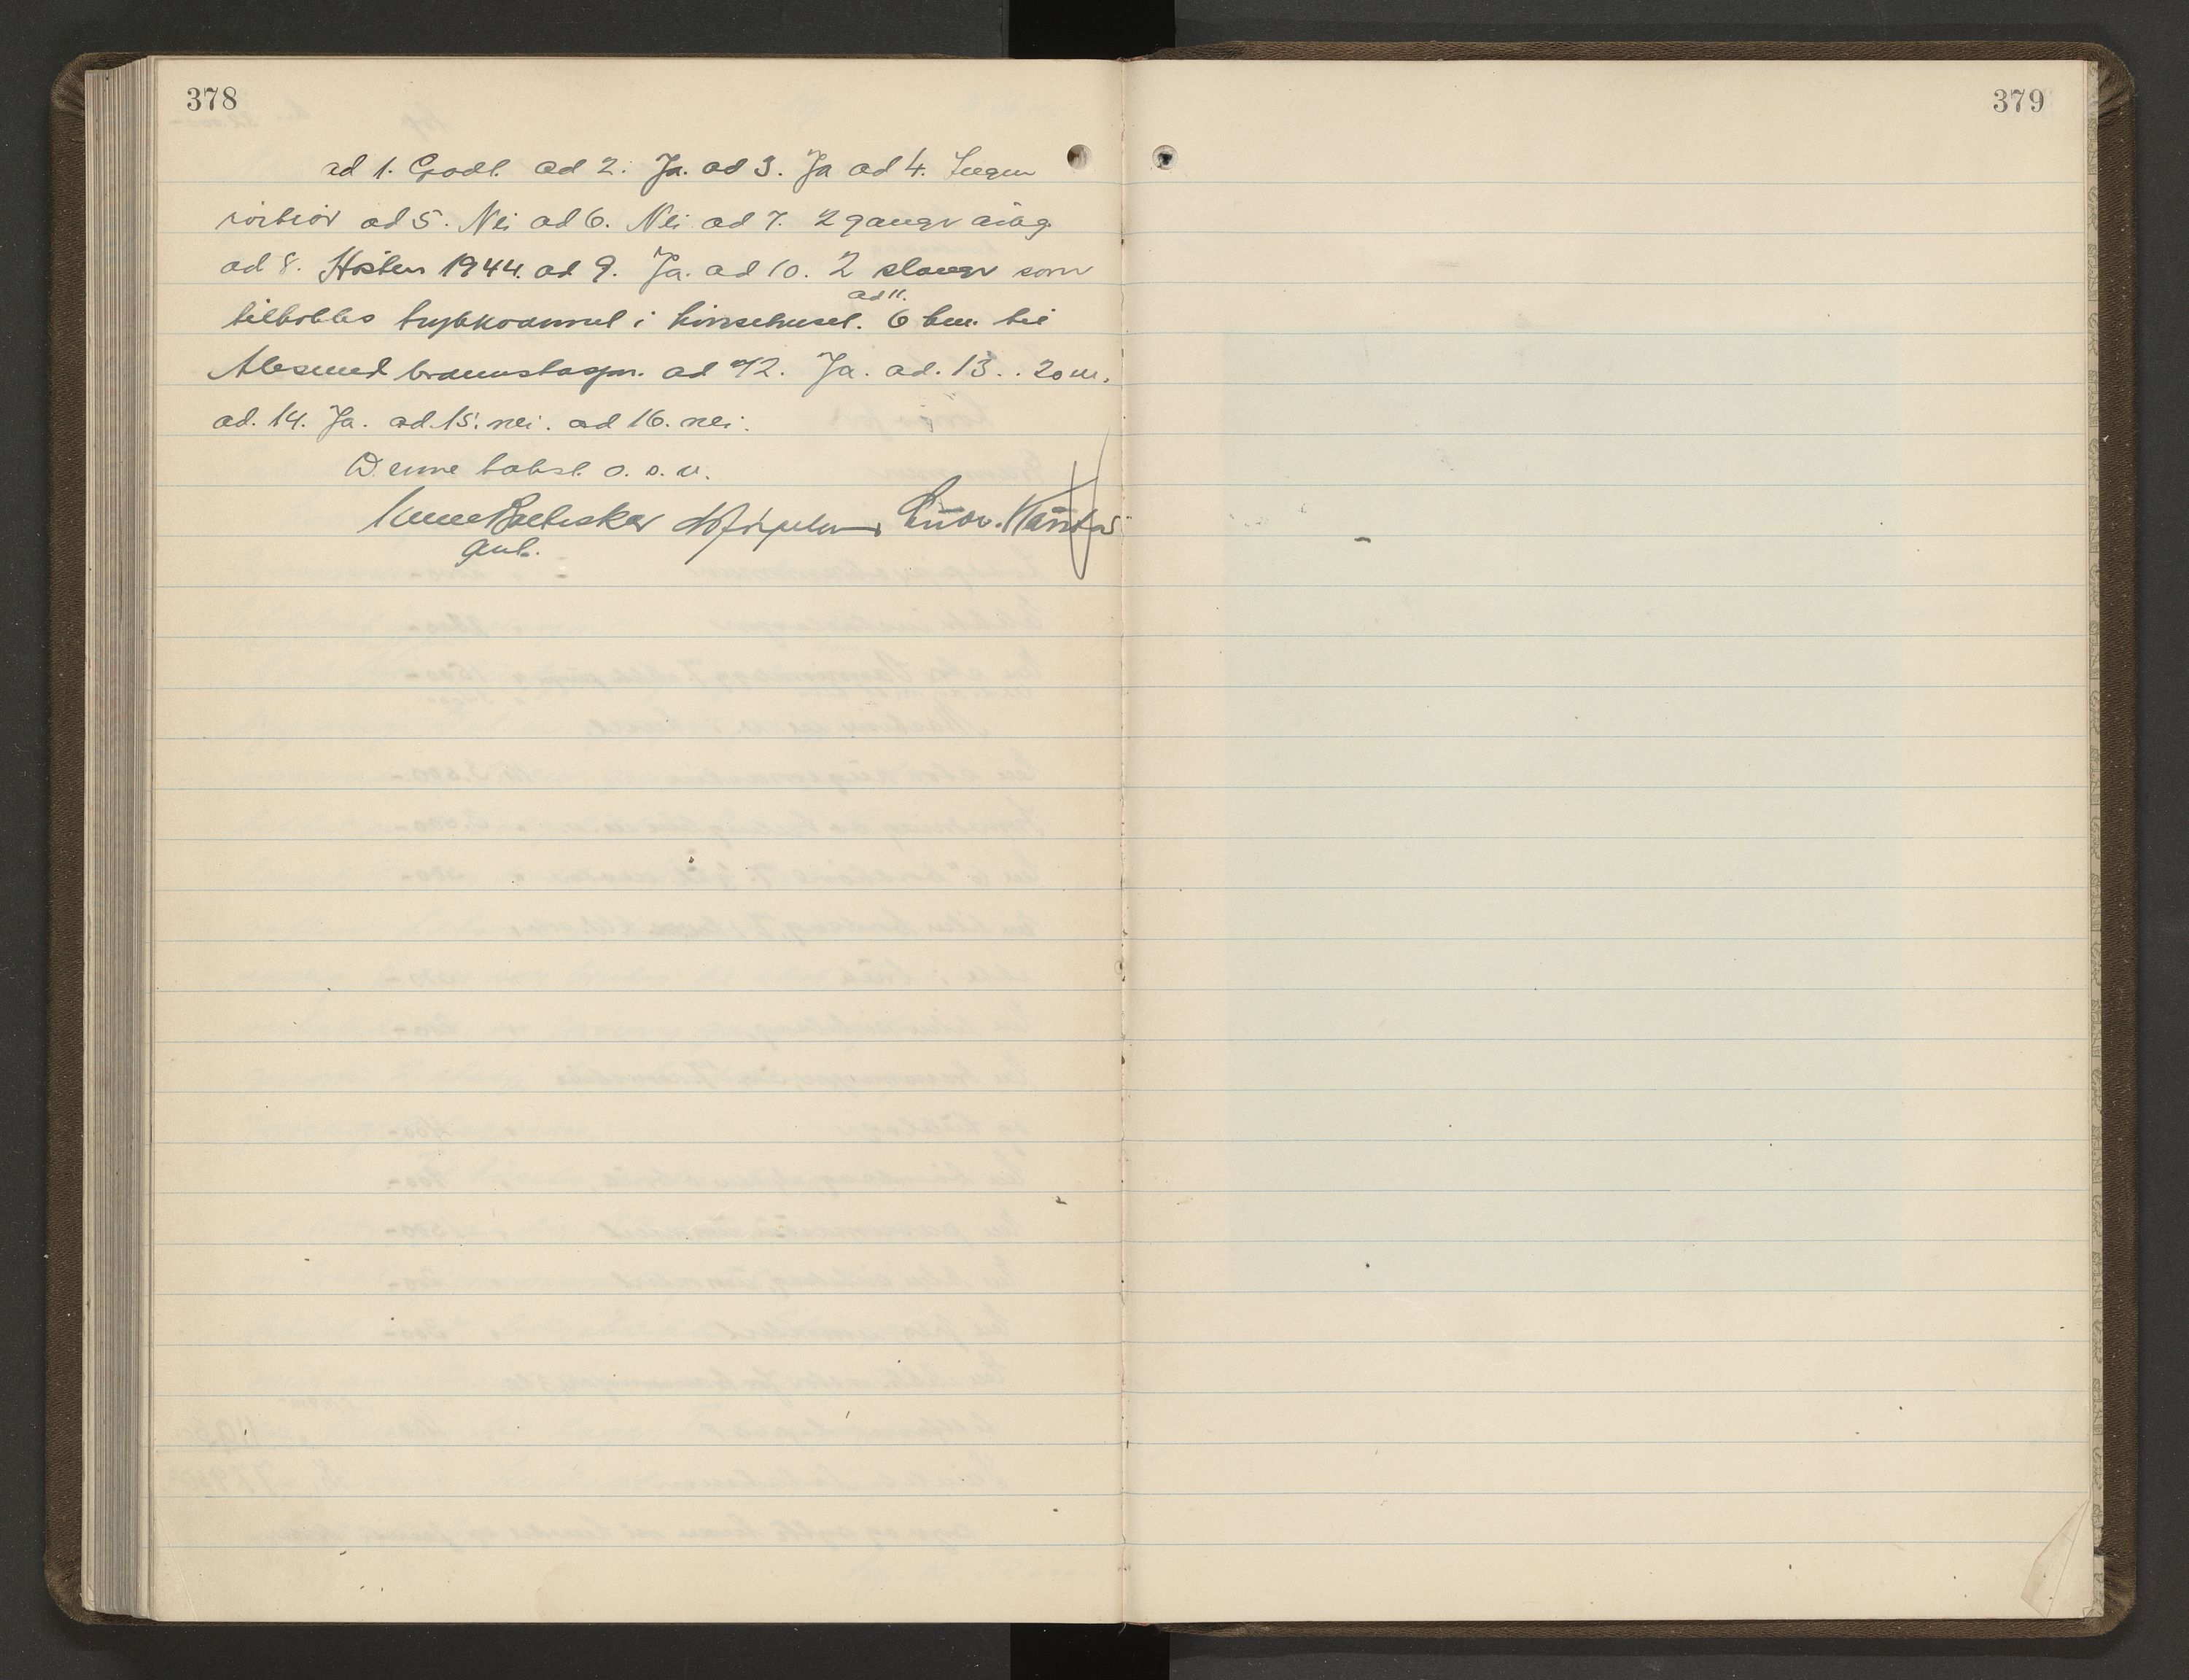 378
ad 1. Godt. ad 2. Ja. ad 3. Ja ad 4. Ingen
ad 5. Nei ad 6. Nei ad 7. 2 ganger årlig
ad 8. Høsten 1944. ad 9. Ja. ad 10. 2 slanger som
ad 11.
tilkobles trykkvannet i 6 km. til
Ålesund brannstasjon. ad 12. Ja. ad. 13. . 20 m.
ad. 14. Ja. ad. 15. nei. ad 16. nei.
Denne takst o. s. v.
379